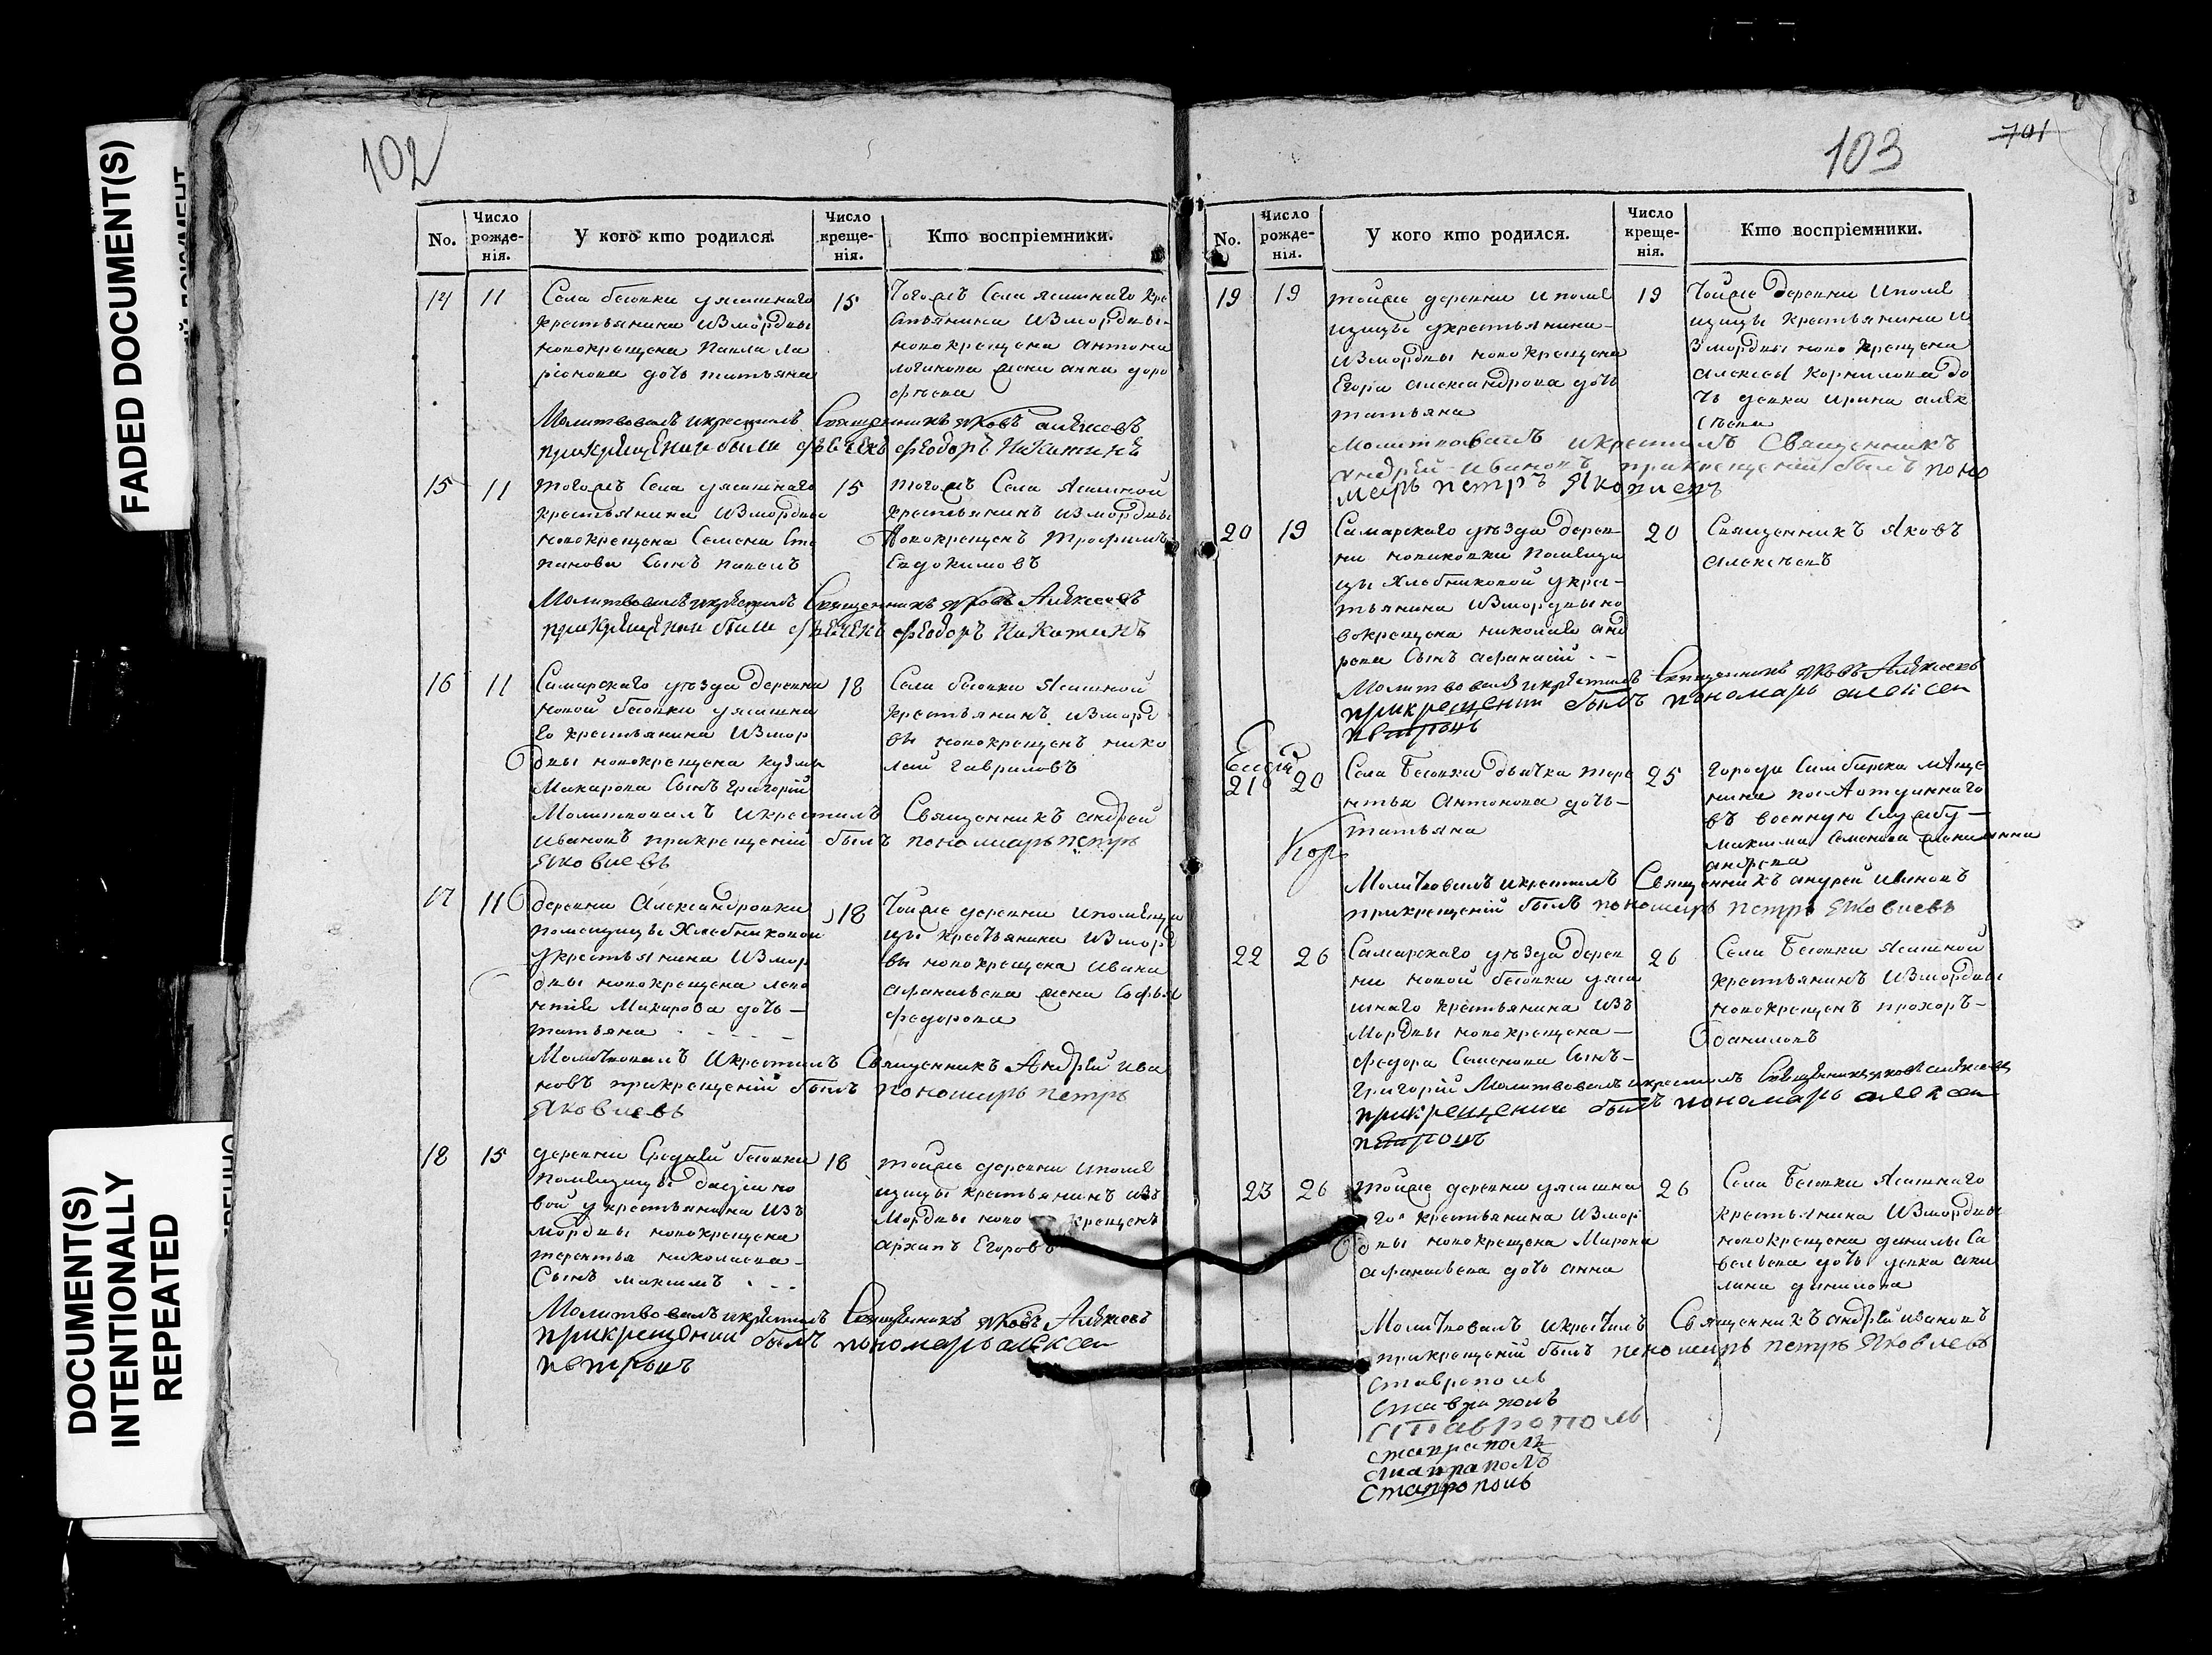 FADED DOCUMENT(S)
DOCUMENT(S)
INTENTIONALLY
REPEATED
102
No.
Число рожде-нія.
У кого кто родился.
Число креще-нія.
Кто воспріемники.
14 11
Села безовки уясашнаго
крестьянина измордвы
новокрещена Павла ла
ріонова дочь татьяна
15
Тогожъ Села ясашнаго кре
стьянина измордвы
новокрещена антона
логинова жена анна доро
фѣева
Молитвовалъ икрестилъ Священникъ Яковъ алексеевъ
прикрещении были дьячекъ феодоръ Никитинъ
15 11
тогожъ Села уясашнаго
крестьянина измордвы
новокрещена Семена Сте
панова Сынъ павелъ
15
тогожъ Села Ясашной
крестьянинъ измордвы
новокрещенъ трофимъ
Евдокимовъ
Молитвовалъ икрестилъ Священникъ Яковъ Алексеевъ
прикрещении были дьячекъ феодоръ Никитинъ
16 11
Самарскаго уѣзда деревни
новой безовки уясашна
го крестьянина измор
двы новокрещена кузмы
Макарова Сынъ Григорій
18
Села безовки Ясашной
крестьянинъ изморд
вы новокрещенъ нико
лай гавриловъ
Молитвовалъ икрестилъ Священникъ андрей
ивановъ прикрещеній былъ пономарь петръ
Яковлевъ
17 11
деревни Александровки
помещицы Хлебниковой
укрестьянина измор
двы новокрещена
Макарова дочь
татьяна
18
Тойже деревни ипомещи
цы крестьянина изморд
вы новокрещена ивана
афанасьева жена Софья
федорова
Молитвовалъ икрестилъ Священникъ Андрей ива
новъ прикрещеній былъ пономарь петръ
Яковлевъ
18 15
деревни Средней безовки
помещицы
вой укрестьянина изъ
мордвы новокрещена
терентья николаева
Сынъ максимъ
18
тойже деревни ипоме
щицы крестьянинъ изъ
мордвы новокрещенъ
архипъ Егоровъ
Молитвовалъ икрестилъ Священникъ Яковъ Алексеевъ
прикрещении былъ пономарь алексей
петровъ
103
701
No.
Число рожде-нія.
У кого кто родился.
Число креще-нія.
Кто воспріемники.
19 19
тойже деревни ипоме
щицы укрестьянина
измордвы новокрещена
Егора александрова дочь
татьяна
19
Тойже деревни ипоме
щицы крестьянина и
змордвы новокрещена
алексея корнилова до
чь девка ирина алек
сѣева
Молитвовалъ икрестилъ Священникъ
Андрей ивановъ прикрещеній былъ поно
марь петръ Яковлевъ
20 19
Самарскаго уѣзда дерев
ни новиковки помещи
цы Хлебниковой укрес
тьянина измордвы но
вокрещена николая анд
реева Сынъ афанасій
20
Священникъ Яковъ
алексѣевъ
Молитвовалъ икрестилъ Священникъ Яковъ Алексеевъ
прикрещении былъ пономарь алексей
петровъ
21 20
Села Безовки дьячка тере
нтья Антонова дочь
татьяна
25
города Симбирска мѣща
нина поступившаго
въ военную службу
максима Семенова жена анна
андреева
Молитвовалъ икрестилъ Священникъ андрей ивановъ
прикрещеній былъ пономарь петръ Яковлевъ
22 26
Самарскаго уѣзда дерев
ни новой безовки уяса
шнаго крестьянина изъ
Мордвы новокрещена
федора Семенова Сынъ
Григорій
26
Села Безовки Ясашной
крестьянинъ измордвы
новокрещенъ прохоръ
даниловъ
Молитвовалъ икрестилъ Священникъ яковъ алексеевъ
прикрещении былъ пономарь алексей
петровъ
23 26
тойже деревни уясашна
го крестьянина измор
двы новокрещена Мирона
афанасьева дочь анна
26
Села Безовки Ясашнаго
крестьянина измордвы
новокрещена данилы Са
вельева дочь девка аку
лина данилова
Молитвовалъ икрестилъ Священникъ андрей ивановъ
прикрещеній былъ пономарь петръ Яковлевъ
Ставрополь
Ставрополь
Ставрополь
Ставраполь
Ставраполъ
Ставрополь